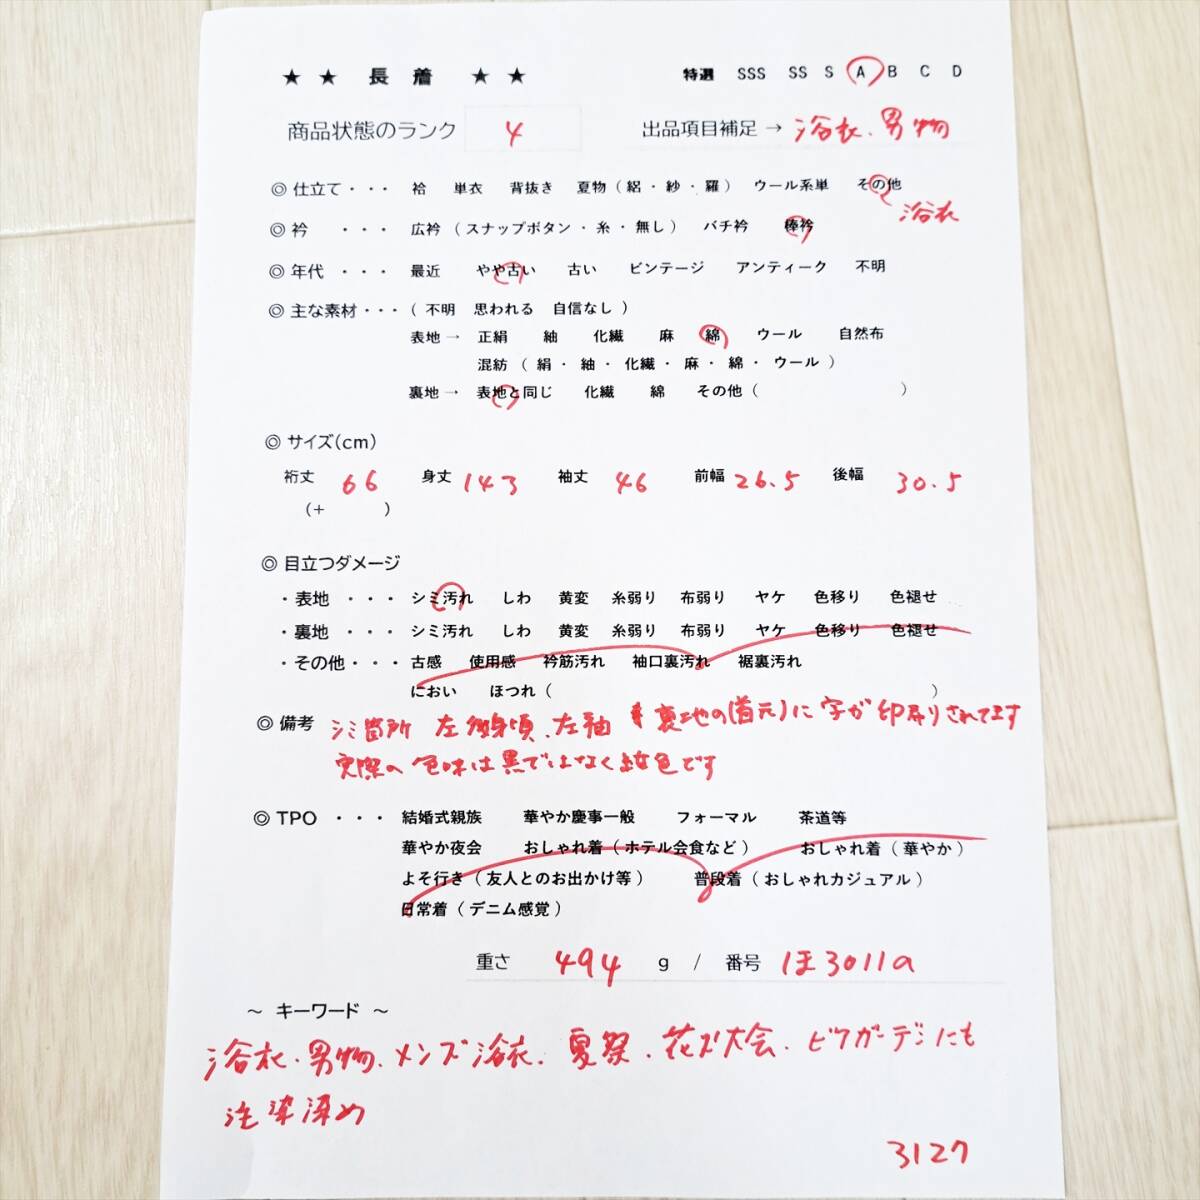 ★ ★ 長 着 ★ ★ 特選 SSS SS S A B C D
商品状態のランク 4 出品項目補足 → 浴衣、男物
◎ 仕立て・・・ 袷 単衣 背抜き 夏物 ( 絽 ・ 紗 ・ 羅 ) ウール系単 その他
浴衣
◎ 衿 ・・・ 広衿 ( スナップボタン ・ 糸 ・ 無し ) バチ衿 棒衿
◎ 年代 ・・・ 最近 やや古い 古い ビンテージ アンティーク 不明
◎ 主な素材・・・ ( 不明 思われる 自信なし )
表地 → 正絹 紬 化繊 麻 綿 ウール 自然布
混紡 ( 絹 ・ 紬 ・ 化繊 ・ 麻 ・ 綿 ・ ウール )
裏地 → 表地と同じ 化繊 綿 その他 ( )
◎ サイズ(cm)
裄丈 66 身丈 143 袖丈 46 前幅 26.5 後幅 30.5
(+ )
◎ 目立つダメージ
・表地 ・・・ シミ汚れ しわ 黄変 糸弱り 布弱り ヤケ 色移り 色褪せ
・裏地 ・・・ シミ汚れ しわ 黄変 糸弱り 布弱り ヤケ 色移り 色褪せ
・その他・・・ 古感 使用感 衿筋汚れ 袖口裏汚れ 裾裏汚れ
におい ほつれ ( )
◎ 備考 シミ箇所 左後身頃、左袖 裏地の(首元)に字が印刷りされてます
実際の色味は黒ではなく紺色です
◎ TPO ・・・ 結婚式親族 華やか慶事一般 フォーマル 茶道等
華やか夜会 おしゃれ着 ( ホテル会食など ) おしゃれ着 ( 華やか )
よそ行き ( 友人とのお出かけ等 ) 普段着 ( おしゃれカジュアル )
日常着 ( デニム感覚 )
重さ 494 g / 番号 ほ3011a
~ キーワード ~
浴衣、男物、メンズ浴衣、夏祭、花火大会、ビアガーデンにも
注染染め
3127